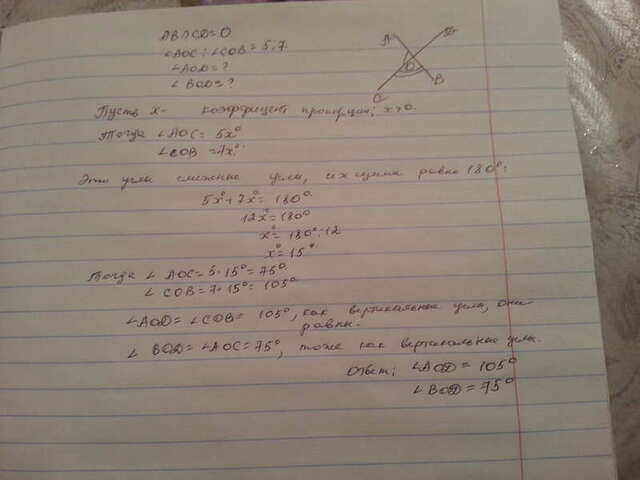 AB∩CD=O
∠AOC : ∠COB = 5:7
∠AOD = ?
∠BOD = ?
A
D
O
C
B
Пусть x - коэффициент пропорции, x>0.
Тогда ∠AOC = 5x°
∠COB = 7x°.
Эти углы смежные углы, их сумма равна 180°:
5x°+7x° = 180°
12x° = 180°
x° = 180°:12
x° = 15°
Тогда ∠AOC = 5·15° = 75°
∠COB = 7·15° = 105°
∠AOD = ∠COB = 105°, как вертикальные углы, они
равны.
∠BOD = ∠AOC = 75°, тоже как вертикальные углы.
Ответ: ∠AOD = 105°
∠BOD = 75°